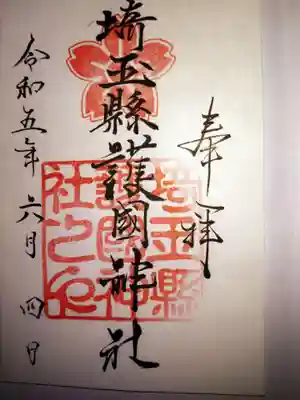 奉拝
埼玉縣護國神社
埼玉縣護國神社之印
令和五年六月四日